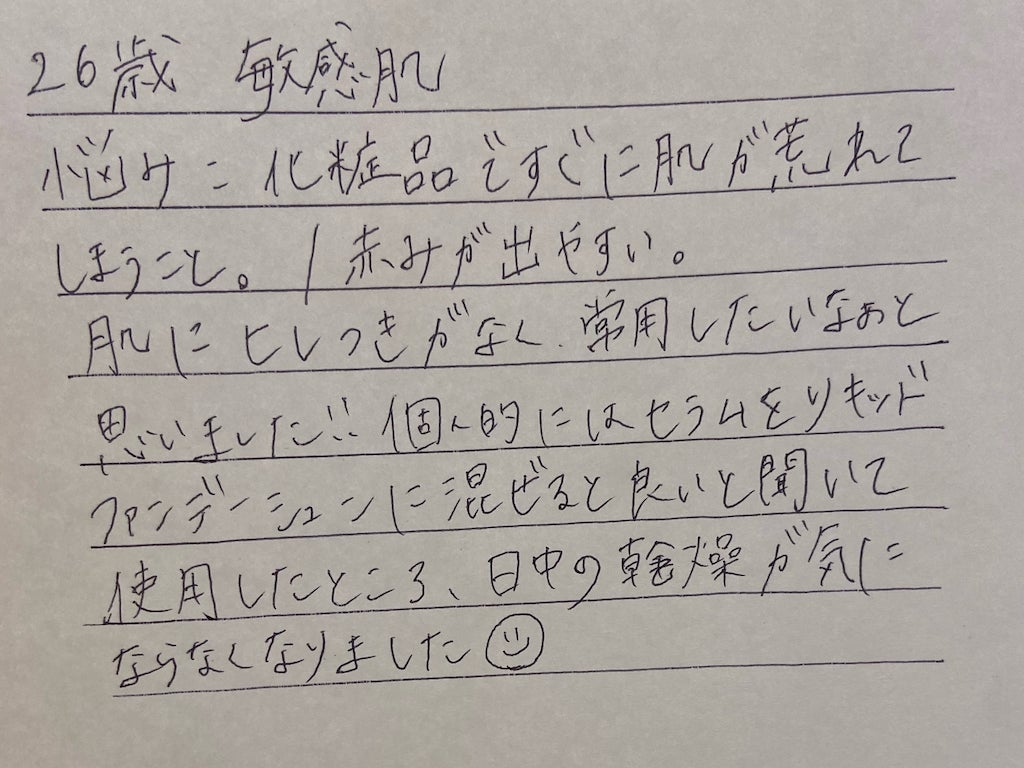 26歳 敏感肌
悩み:化粧品ですぐに肌が荒れて
しまうこと。/赤みが出やすい。
肌にヒしつきがなく、常用したいなぁと
思いました!! 個人的にはセラムをリキッド
ファンデーションに混ぜると良いと聞いて
使用したところ、日中の乾燥が気に
ならなくなりました☺